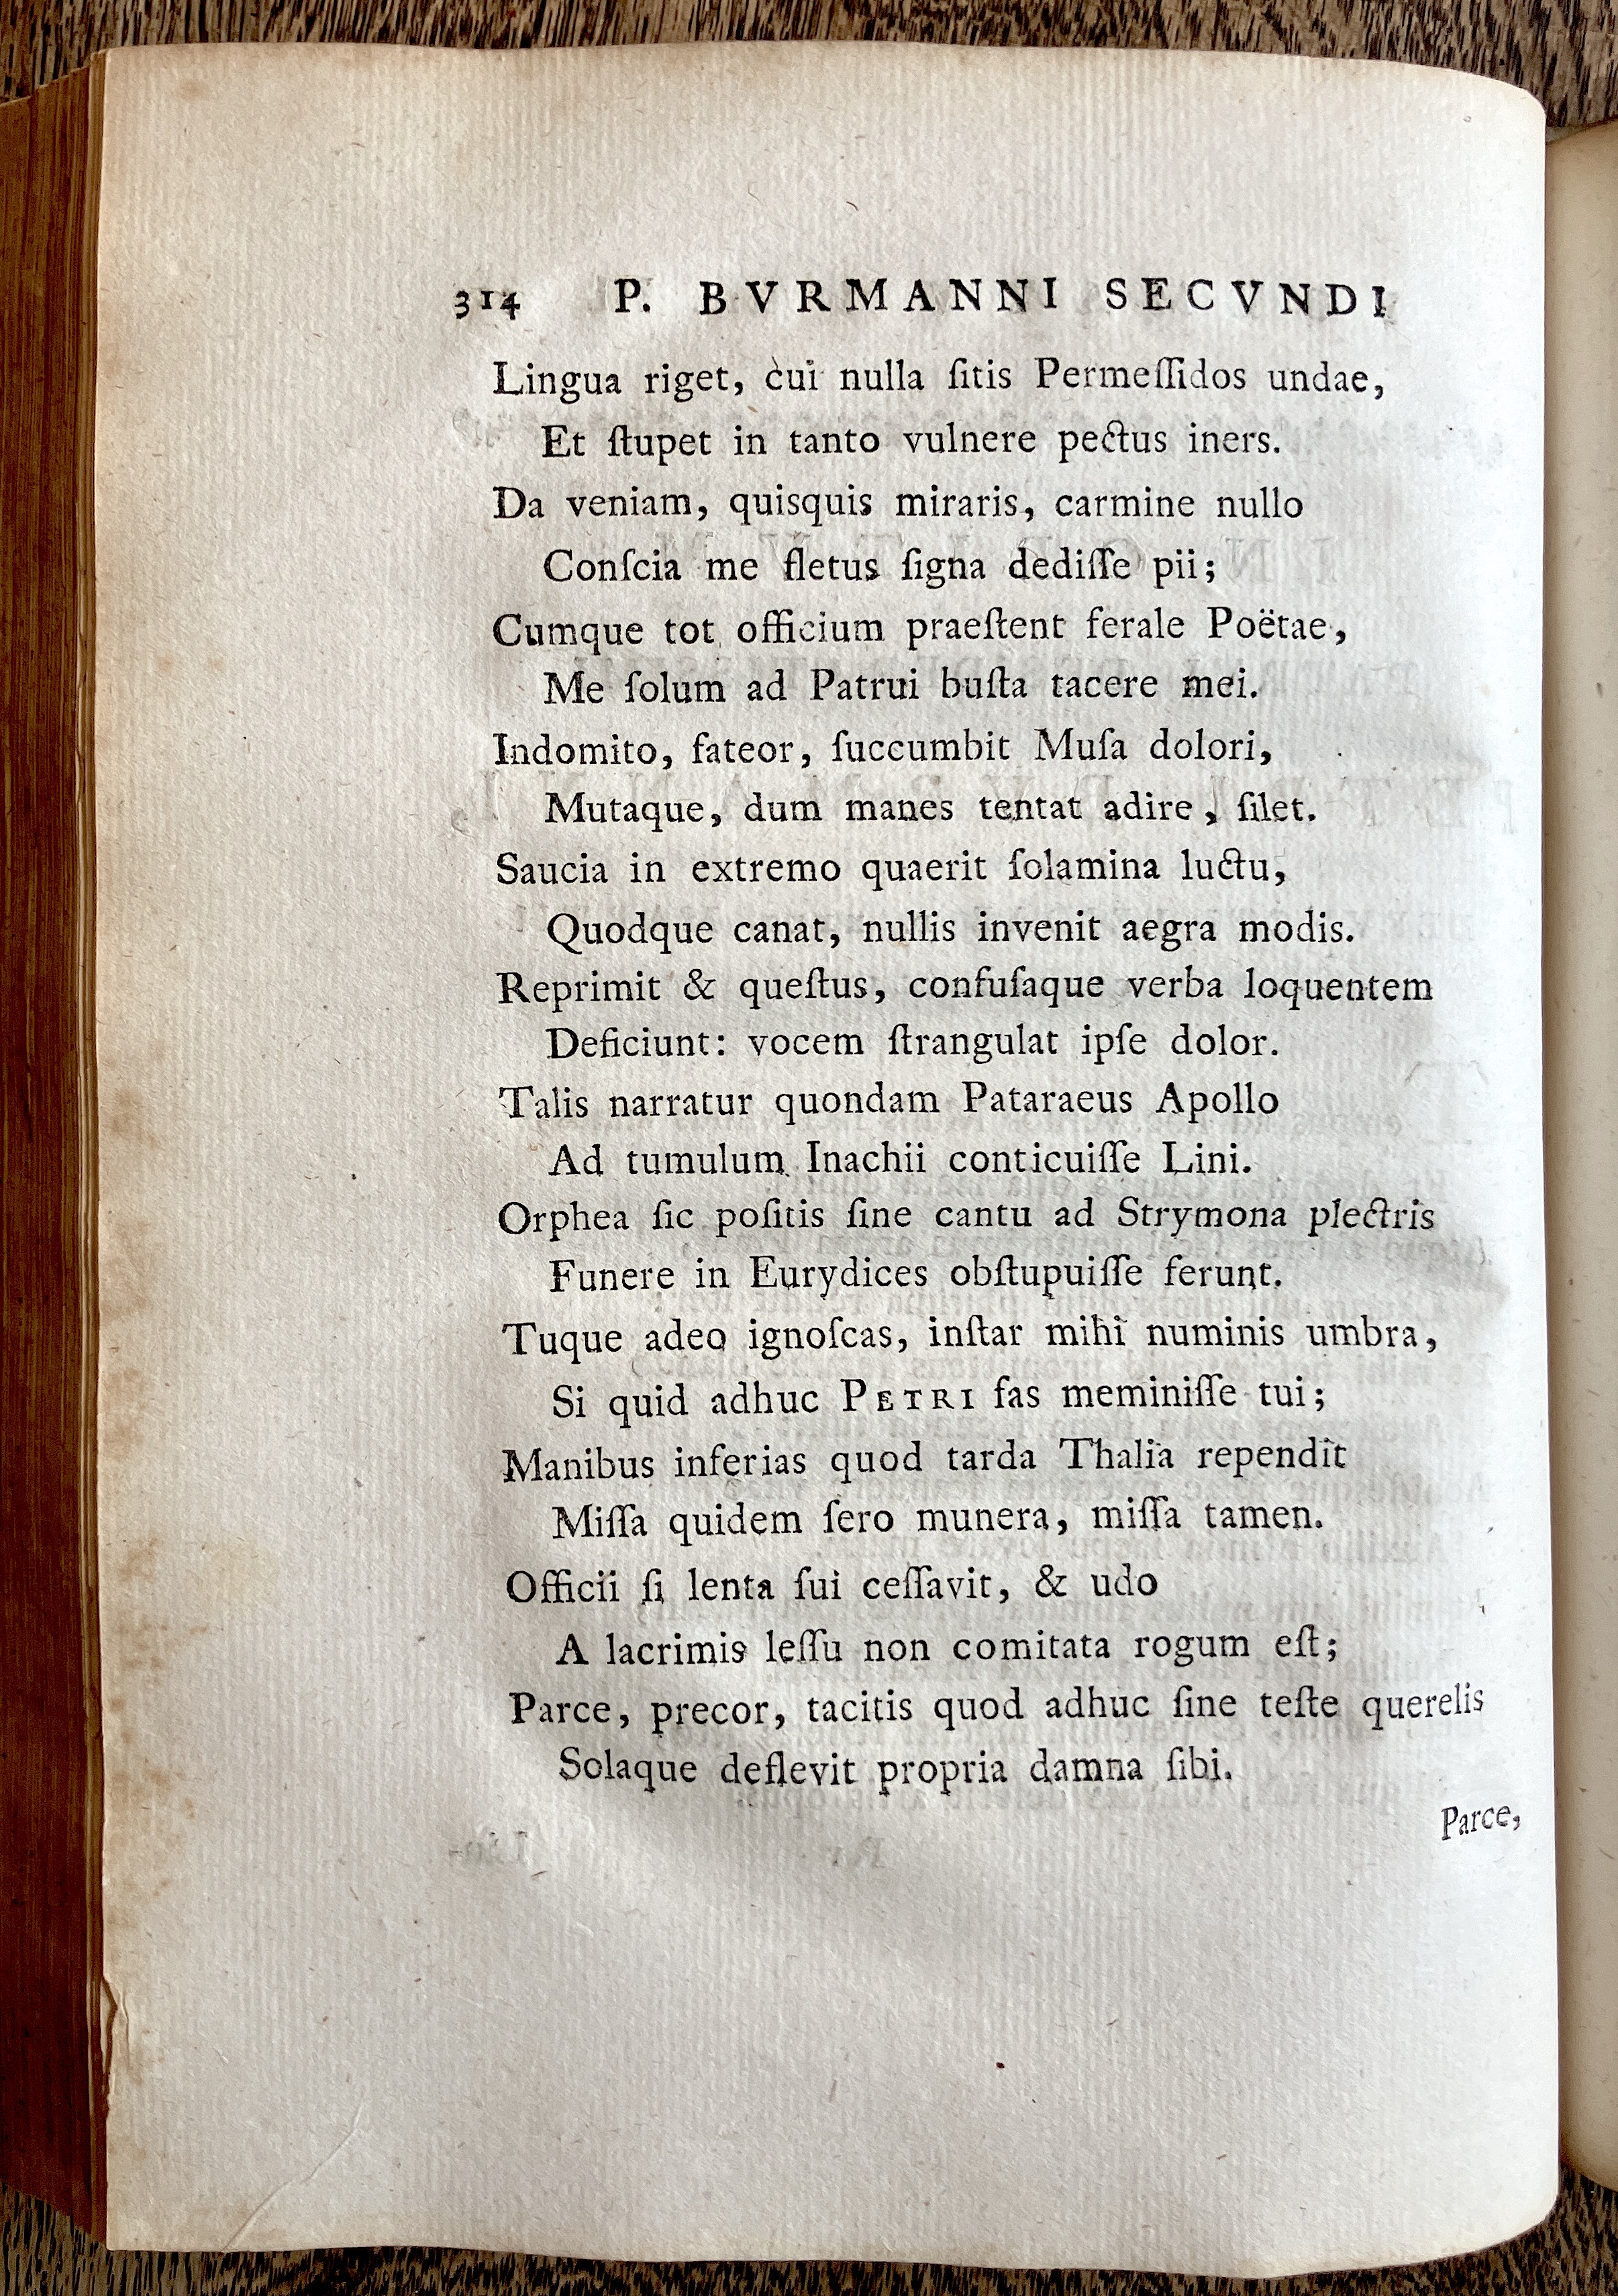 314 P. BVRMANNI SECVNDI
Lingua riget, cui nulla ſitis Permeſſidos undae,
Et ſtupet in tanto vulnere pectus iners.
Da veniam, quisquis miraris, carmine nullo
Conſcia me fletus ſigna dediſſe pii;
Cumque tot officium praeſtent ferale Poëtae,
Me ſolum ad Patrui buſta tacere mei.
Indomito, fateor, ſuccumbit Muſa dolori,
Mutaque, dum manes tentat adire, ſilet.
Saucia in extremo quaerit ſolamina luctu,
Quodque canat, nullis invenit aegra modis.
Reprimit & queſtus, confuſaque verba loquentem
Deficiunt: vocem ſtrangulat ipſe dolor.
Talis narratur quondam Pataraeus Apollo
Ad tumulum Inachii conticuiſſe Lini.
Orphea ſic poſitis ſine cantu ad Strymona plectris
Funere in Eurydices obſtupuiſſe ferunt.
Tuque adeo ignoſcas, inſtar mihi numinis umbra,
Si quid adhuc PETRI fas meminiſſe tui;
Manibus inferias quod tarda Thalia rependit
Miſſa quidem ſero munera, miſſa tamen.
Officii ſi lenta ſui ceſſavit, & udo
A lacrimis leſſu non comitata rogum eſt;
Parce, precor, tacitis quod adhuc ſine teſte querelis
Solaque deflevit propria damna ſibi.
Parce,